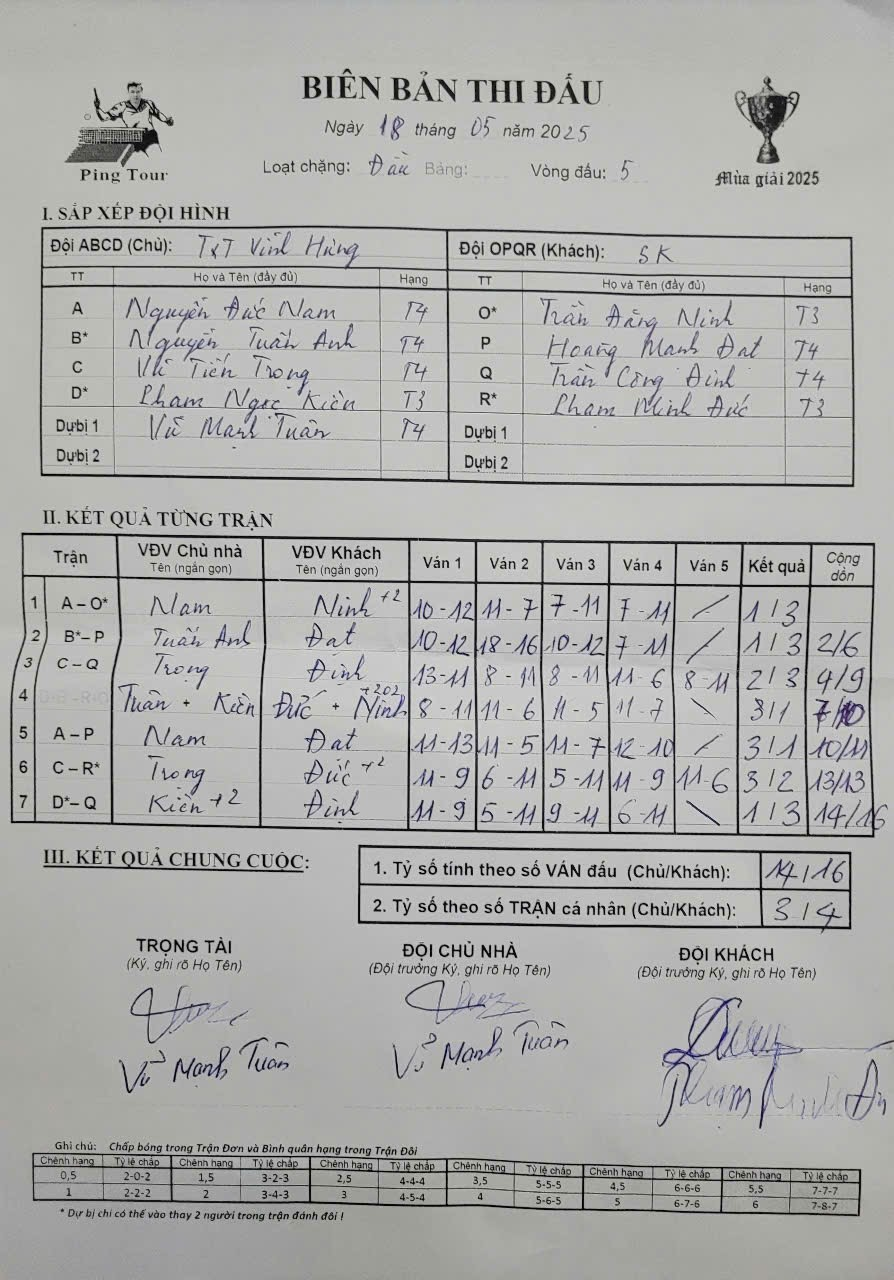 BIÊN BẢN THI ĐẤU
Ngày 18 tháng 05 năm 2025
Loạt chặng: Đầu Bảng: Vòng đấu: 5
Ping Tour
Mùa giải 2025
I. SẮP XẾP ĐỘI HÌNH
Đội ABCD (Chủ): TXT Vĩnh Hưng Đội OPQR (Khách): SK
TT Họ và Tên (đầy đủ) Hạng TT Họ và Tên (đầy đủ) Hạng
A Nguyễn Đức Nam T4 O* Trần Đăng Ninh T3
B* Nguyễn Tuấn Anh T4 P Hoàng Mạnh Đạt T4
C Vũ Tiến Trọng T4 Q Trần Công Định T4
D* Phạm Ngọc Kiên T3 R* Phạm Minh Đức T3
Dự bị 1 Vũ Mạnh Tuân T4 Dự bị 1
Dự bị 2 Dự bị 2
II. KẾT QUẢ TỪNG TRẬN
Trận VĐV Chủ nhà Tên (ngắn gọn) VĐV Khách Tên (ngắn gọn) Ván 1 Ván 2 Ván 3 Ván 4 Ván 5 Kết quả Cộng dồn
1 A – O* Nam Ninh +2 10-12 11-7 7-11 7-11 / 1/3
2 B* – P Tuấn Anh Đạt 10-12 18-16 10-12 7-11 / 1/3 2/6
3 C – Q Trọng Định 13-11 8-11 8-11 11-6 8-11 2/3 4/9
4 Tuân + Kiên Đức + Ninh +202 8-11 11-6 11-5 11-7 \ 3/1 7/10
5 A – P Nam Đạt 11-13 11-5 11-7 12-10 / 3/1 10/11
6 C – R* Trọng Đức +2 11-9 6-11 5-11 11-9 11-6 3/2 13/13
7 D* – Q Kiên +2 Định 11-9 5-11 9-11 6-11 \ 1/3 14/16
III. KẾT QUẢ CHUNG CUỘC:
1. Tỷ số tính theo số VÁN đấu (Chủ/Khách): 14/16
2. Tỷ số theo số TRẬN cá nhân (Chủ/Khách): 3/4
TRỌNG TÀI ĐỘI CHỦ NHÀ ĐỘI KHÁCH
(Ký, ghi rõ Họ Tên) (Đội trưởng Ký, ghi rõ Họ Tên) (Đội trưởng Ký, ghi rõ Họ Tên)
Vũ Mạnh Tuân Vũ Mạnh Tuân Phạm Minh
Ghi chú: Chấp bóng trong Trận Đơn và Bình quân hạng trong Trận Đôi
Chênh hạng Tỷ lệ chấp Chênh hạng Tỷ lệ chấp Chênh hạng Tỷ lệ chấp Chênh hạng Tỷ lệ chấp Chênh hạng Tỷ lệ chấp Chênh hạng Tỷ lệ chấp
0,5 2-0-2 1,5 3-2-3 2,5 4-4-4 3,5 5-5-5 4,5 6-6-6 5,5 7-7-7
1 2-2-2 2 3-4-3 3 4-5-4 4 5-6-5 5 6-7-6 6 7-8-7
* Dự bị chỉ có thể vào thay 2 người trong trận đánh đôi !